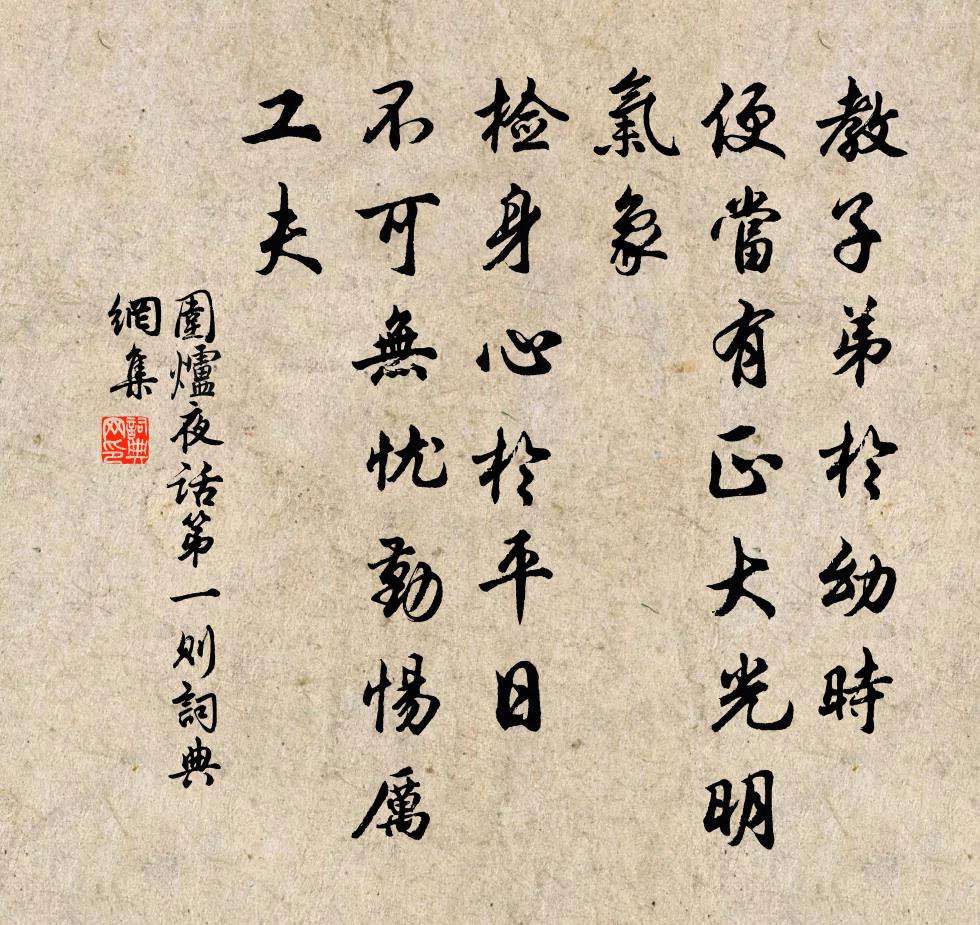 教子弟於幼時
便當有正大光明
氣象
檢身心於平日
不可無忧勤惕厲
工夫
圍爐夜话第一则詞典
網集
詞典
网印